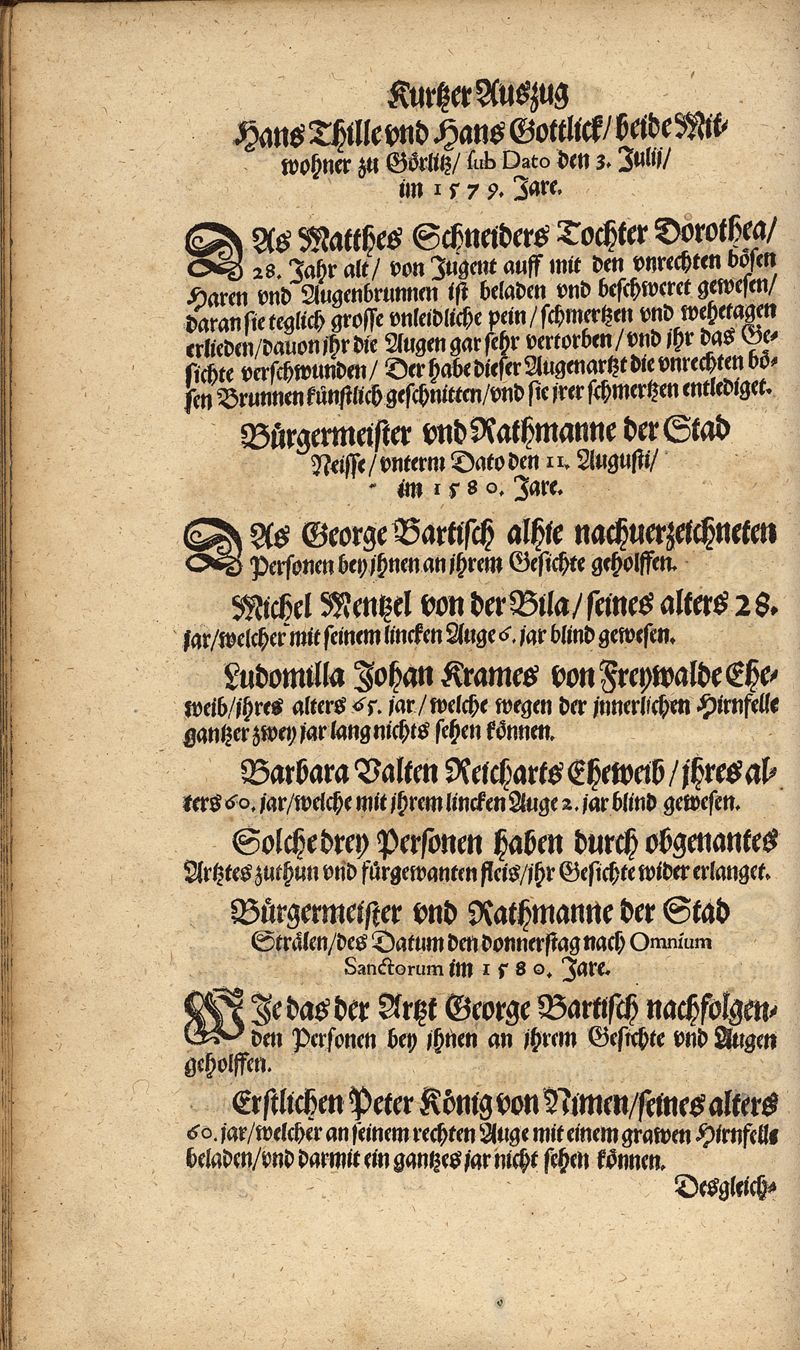 Kurtzer Auszug
Hans Thille vnd Hans Gottlick/ beide Mit-
wohner zu Görlitz/ sub Dato den 3. Julij/
im 1579. Jare.
DAs Matthes Schneiders Tochter Dorothea/
28. Jahr alt/ von Jugent auff mit den vnrechten bösen
Haren vnd Augenbrunnen ist beladen vnd beschweret gewesen/
daran sie teglich grosse vnleidliche pein/ schmertzen vnd wehetagen
erlieden/ dauon jhr die Augen gar sehr vertorben/ vnd jhr das Ge-
sichte verschwunden/ Der habe dieser Augenartzt die vnrechten bö-
sen Brunnen künstlich geschnitten/ vnd sie jrer schmertzen entlediget.
Bürgermeister vnd Rathmanne der Stad
Neisse/ vnterm Dato den 11. Augusti/
im 1580. Jare.
DAs George Bartisch alhie nachuerzeichneten
Personen bey jhnen an jhrem Gesichte geholffen.
Michel Mentzel von der Bila/ seines alters 28.
jar/ welcher mit seinem lincken Auge 6. jar blind gewesen.
Ludomilla Johan Krames von Freywalde Ehe-
weib/ jhres alters 65. jar/ welche wegen der jnnerlichen Hirnfelle
gantzer zwey jar lang nichts sehen können.
Barbara Valten Reicharts Eheweib/ jhres al-
ters 60. jar/ welche mit jhrem lincken Auge 2. jar blind gewesen.
Solche drey Personen haben durch obgenantes
Artztes zuthun vnd fürgewanten fleis/ jhr Gesichte wider erlanget.
Bürgermeister vnd Rathmanne der Stad
Strälen/ des Datum den donnerstag nach Omnium
Sanctorum im 1580. Jare.
WJe das der Artzt George Bartisch nachfolgen-
den Personen bey jhnen an jhrem Gesichte vnd Augen
geholffen.
Erstlichen Peter König von Nimen/ seines alters
60. jar/ welcher an seinem rechten Auge mit einem grawen Hirnfelle
beladen/ vnd darmit ein gantzes jar nicht sehen können.
Desgleich-